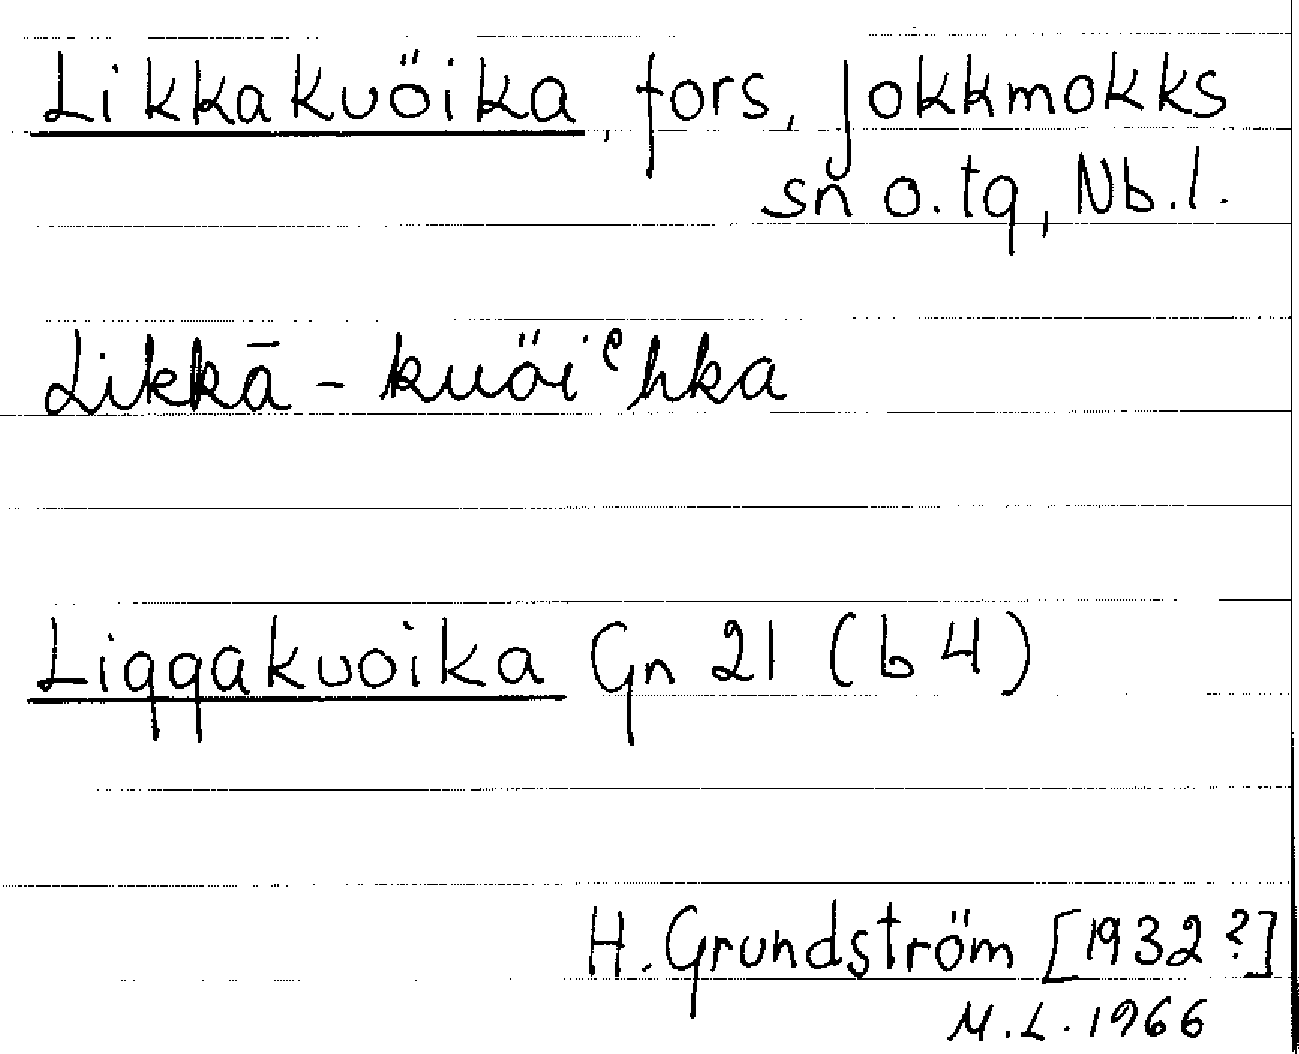 Likkakuöika, fors, Jokkmokks
sn o. tg, Nb. l.
Likkā - kuöiʿhka
Liggakuoika Gn 21 (b 4)
H. Grundström [1932?]
M. L. 1966